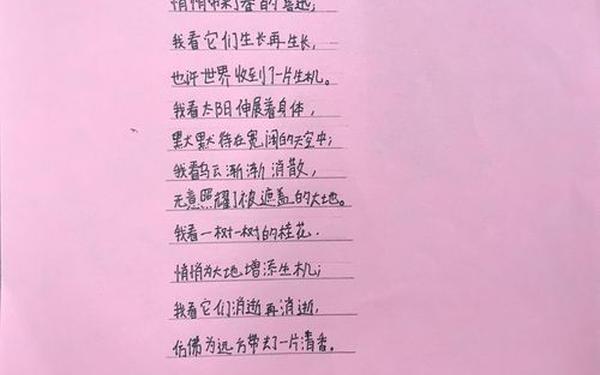 悄悄带来了春的喜迅；
我看它们生长再生长，
也许世界收到了一片生机。
我看太阳伸展着身体，
默默待在宽阔的天空中；
我看乌云渐渐消散，
无意照耀了被遮盖的大地。
我看一树一树的桂花．
悄悄为大地增添生机；
我看它们消逝再消逝，
仿佛为远方带去了一片清香。